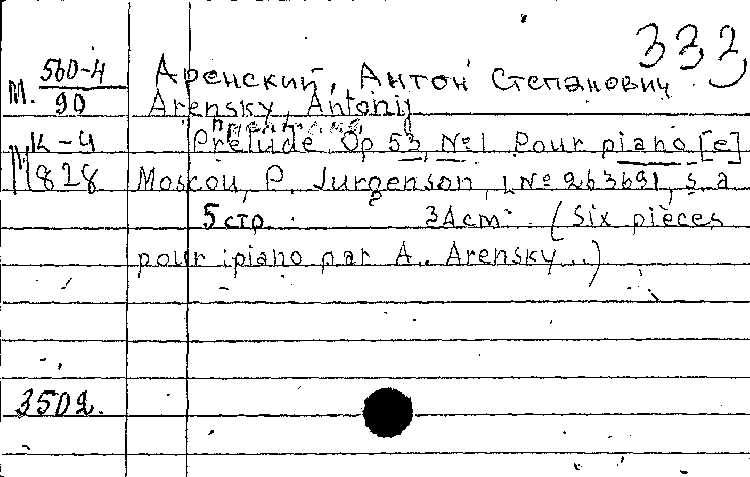 333
М. 560-4
90
Аренский, Антон Степанович
Arensky, Antonij
К-4
828
Prélude Op 53, №1 Pour piano [e]
Moscou, P. Jurgenson, №263691, s. a
5 стр. 34cm. (Six pièces
pour piano par A.. Arensky..)
3502.